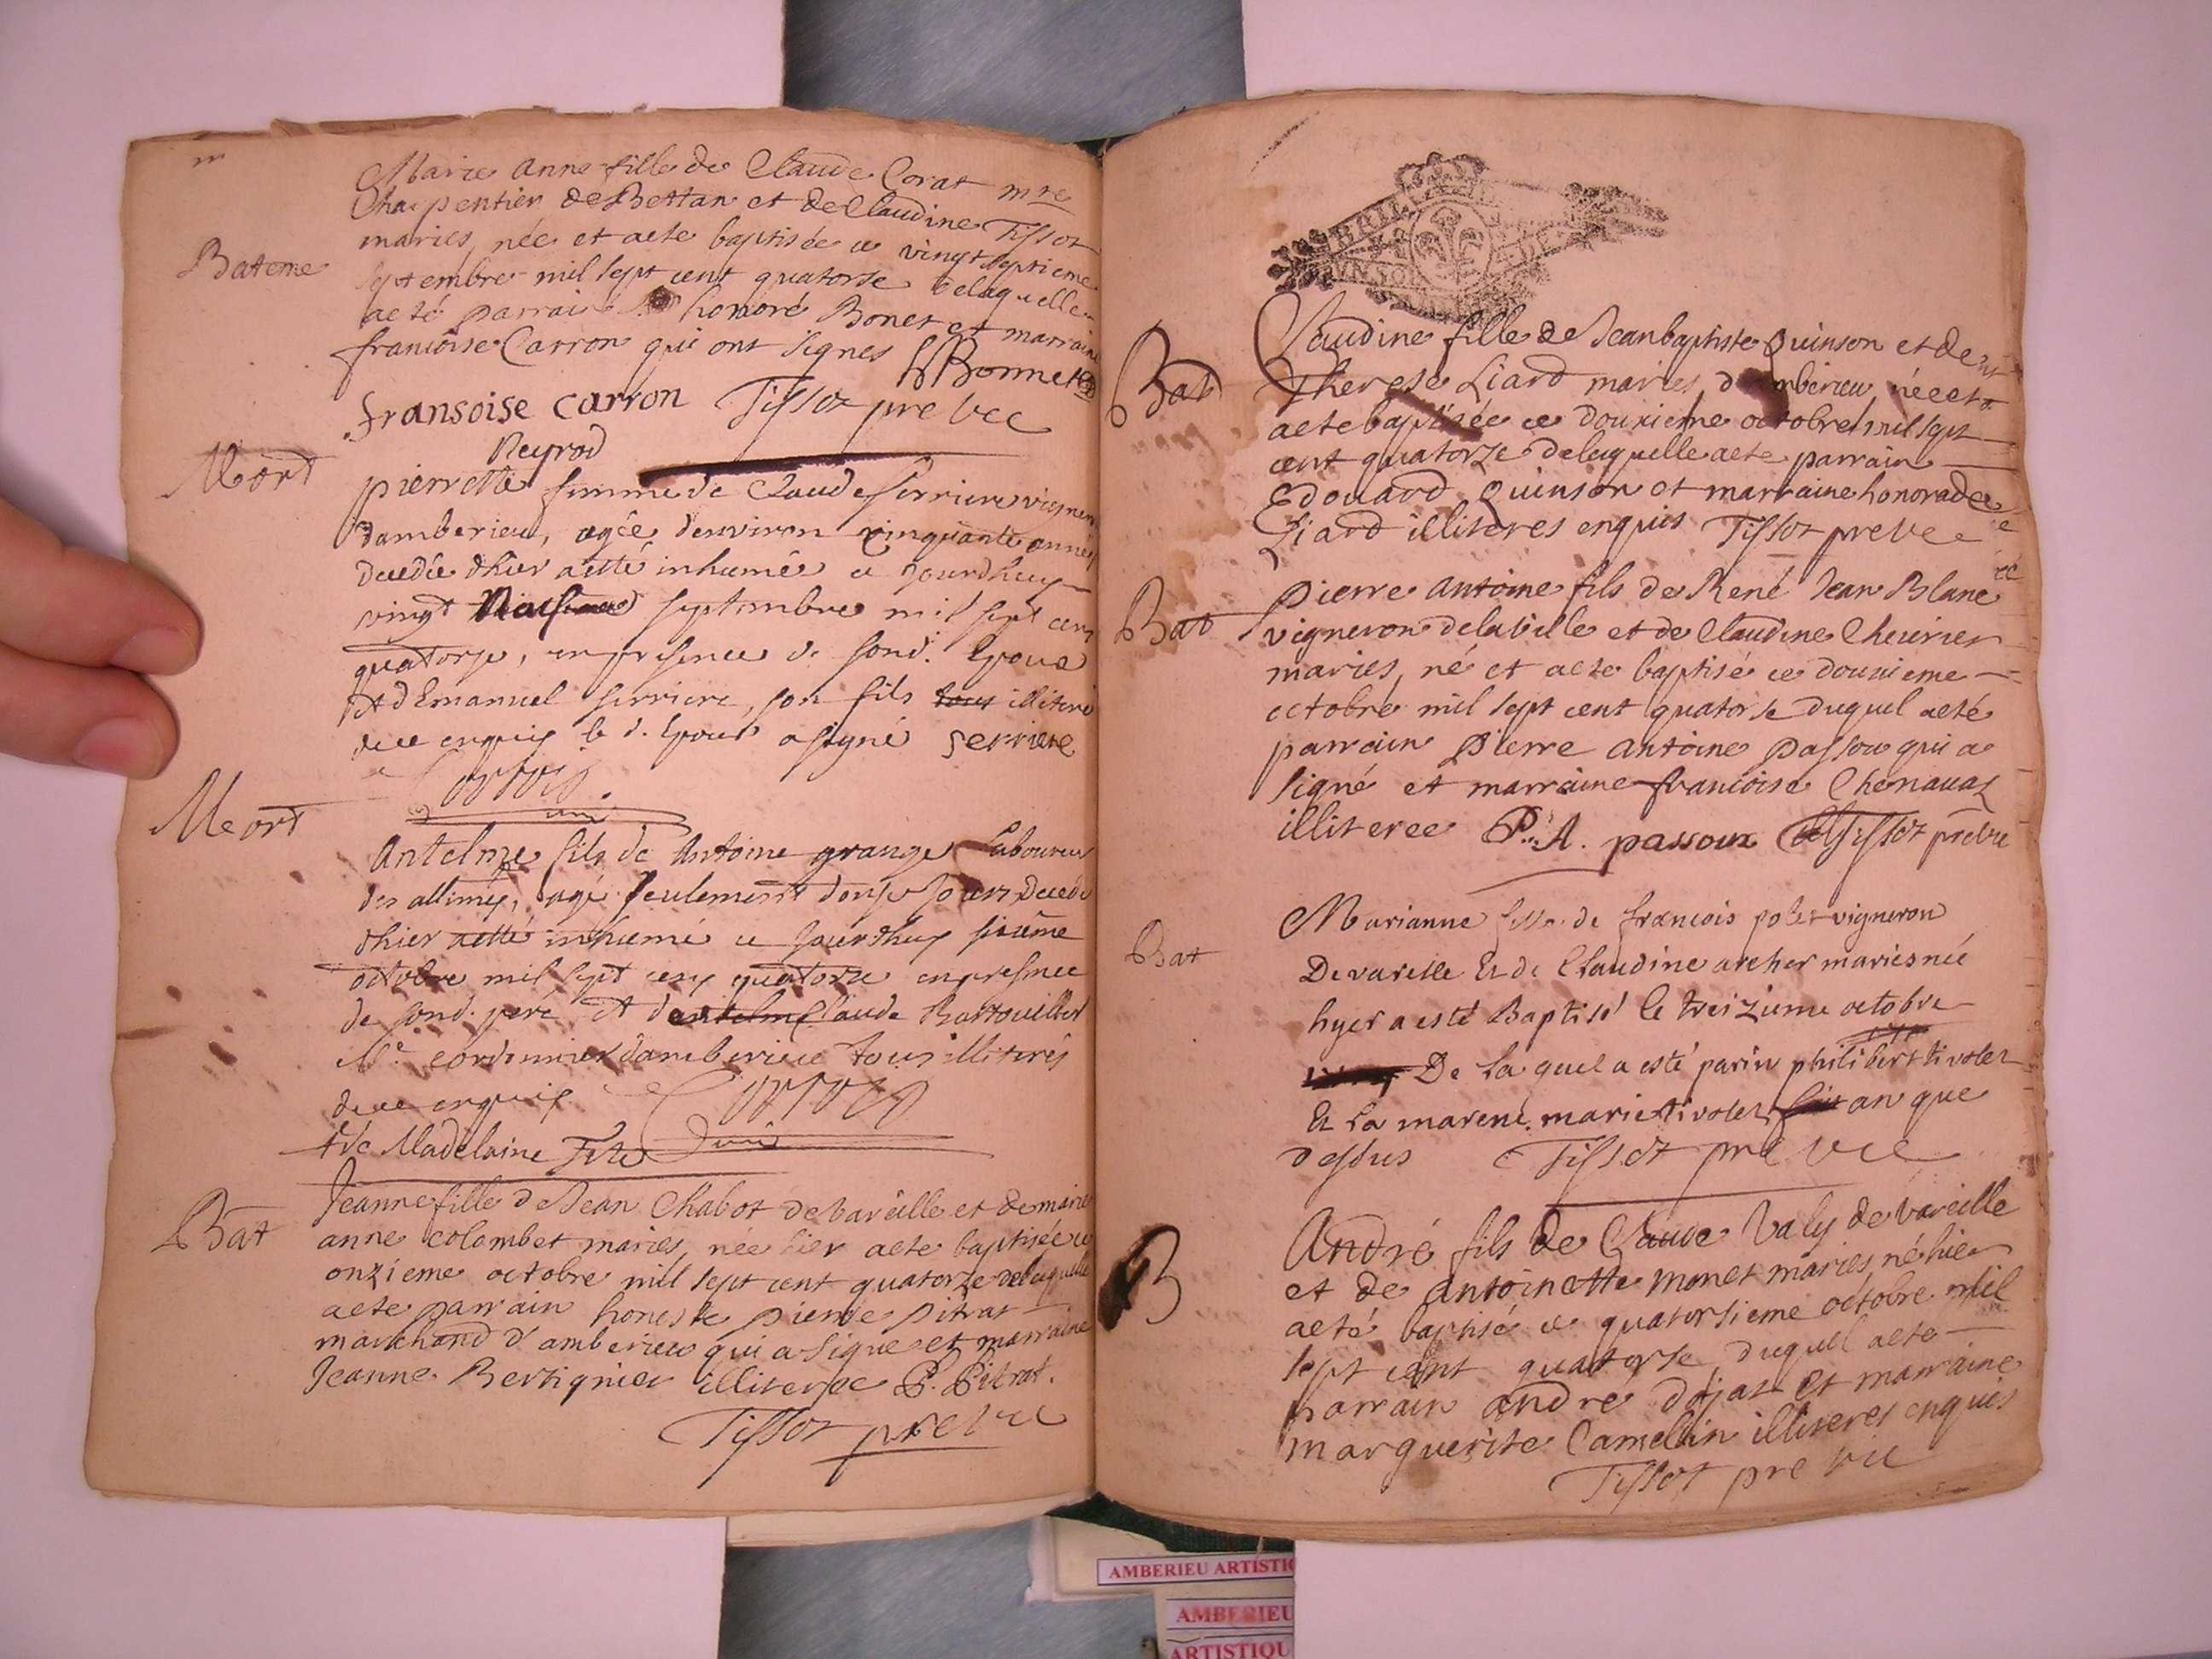 Bateme
Marie Anne fille de Claude Corat mre
Charpentier de Bettan et de Claudine Tissot
maries, née et aeté baptisée ce vingt septieme
septembre mil sept cent quatorse delaquelle
aeté parrain honoré Bonet et marraine
francoise Carron qui ont signes HBonnet
fransoise carron Tissot pre vic
Mort
Neyrod
pierrette femme de Claude serriere vigneron
damberieu, agée denviron cinquante années
decedée dhier aesté inhumée ce jourdhuy
vingt septembre mil sept cens
quatorse, en presence de sond. Epoux
et dEmanuel serriere, son fils tous illiteré
de ce enquis le d. Epoux a signé serriere
Mort
Antelme fils de Antoine grange Laboureur
des allimes, agé seulement douse jours decedé
dhier aesté inhumé ce jourdhuy sixième
octobre mil sept cens quatorse en presence
de sond. pere et d antelme Claude
Me cordonnier damberieu tous illiterés
de ce enquis
+ de Madelaine
Bat
Jeanne fille de Jean Chabot de vareille et de marie
anne colombet maries, née hier aete baptisée ce
onzieme octobre mil sept cent quatorze delaquelle
aete parrain honeste pierre pitrat
marchand d'amberieu qui a signe et marraine
Jeanne Bertignier illiteree P. Pitrat.
Tissot pre vic
Bat
Claudine fille de Jean baptiste Quinson et de
Therese Liard maries, d'amberieu, née et
aete baptisée ce douxieme octobre mil sept
cent quatorze delaquelle aete parrain
Edouard Quinson et marraine honorade
Liard illiteres enquis Tissot pre vic
Bat
Pierre Antoine fils de René Jean Blanc
vigneron delaville et de Claudine Cheurier
maries, né et aete baptisé ce douxieme
octobre mil sept cent quatorse duquel aeté
parrain Pierre Antoine Passou qui a
signé et marraine francoise Chenavaz
illiteree P. A. passoux Tissot pre vic
Bat
Marianne fille de francois polet vigneron
De vareille Et de Claudine archer maries née
hyer a esté Baptisé le treizieme octobre
De La quel a esté parin philibert tivolet
Et La marene marie tivolet an que
dessus Tissot pre vic
B
André fils de Claude Valy de Vareille
et de Antoinette monet maries, né hier
aeté baptisé ce quatorsieme octobre mil
sept cent quatorse, duquel aete
parrain andre dejat et marraine
marguerite Camelin illiteres enquis
Tissot pre vic
AMBERIEU ARTISTIQ
AMBERIEU
ARTISTIQU